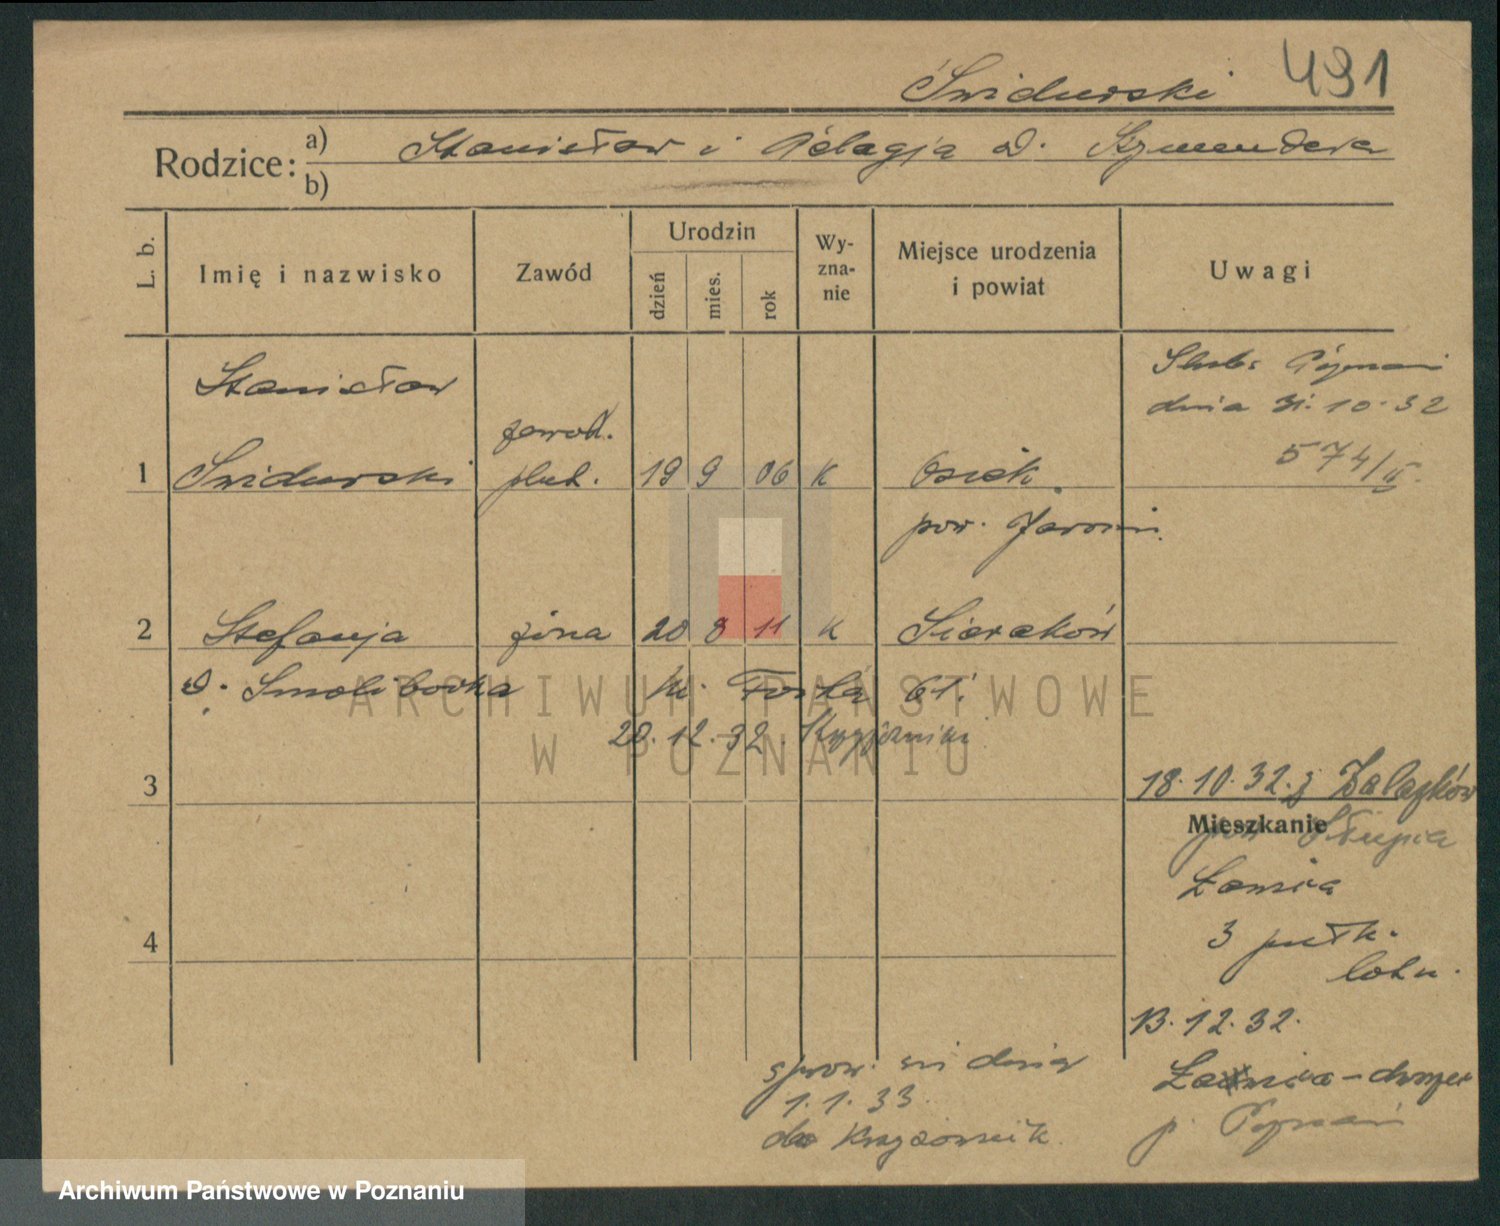 Świdurski 491
Rodzice: a) Stanisław i Pelagja d. Szymendera
b)
L. b.
Imię i nazwisko
Zawód
Urodzin
dzień
mies.
rok
Wy-
zna-
nie
Miejsce urodzenia
i powiat
Uwagi
Stanisław
zawod.
1 Świdurski plut. 19 9 06 K Osiek
pow. Jarocin
Ślub: Poznań
dnia 31.10.32
574/II.
2 Stefanja żona 20 8 11 K Sieraków
d. Smolibocka
20.12.32.
3
18.10.32. z
Mieszkanie
pow. Słupia
Ławica
3 pułk.
lotn.
4
13.12.32.
Ławica-dworzec
p. Poznań
sprow. się dnia
1.1.33.
do Krzyżownik.
ARCHIWUM PAŃSTWOWE
W POZNANIU
Archiwum Państwowe w Poznaniu